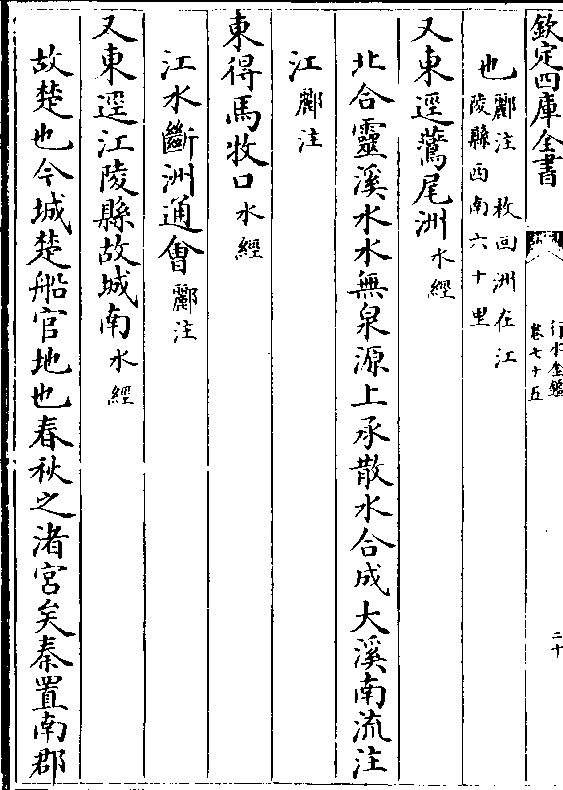 欽定四庫全書
行水金鑑
卷七十五
二十
也酈注 枚回洲在江
陵縣西南六十里
又東逕鷰尾洲水經
北合靈溪水水無泉源上承散水合成大溪南流注
江酈注
東得馬牧口水經
江水斷洲通會酈注
又東逕江陵縣故城南水經
故楚也今城楚船官地也春秋之渚宮矣秦置南郡